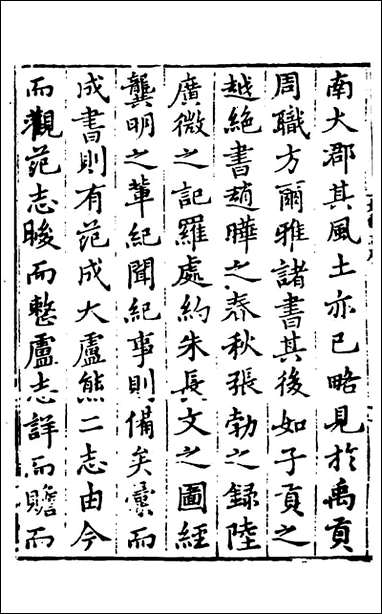 南大郡其風土亦已略見於禹貢
周職方爾雅諸書其後如子貢之
越絶書趙曄之春秋張勃之録陸
廣微之記羅處約朱長文之圖經
龔明之輩紀聞紀事則備矣彚而
成書則有范成大盧熊二志由今
而觀范志晙而整盧志詳而贍而